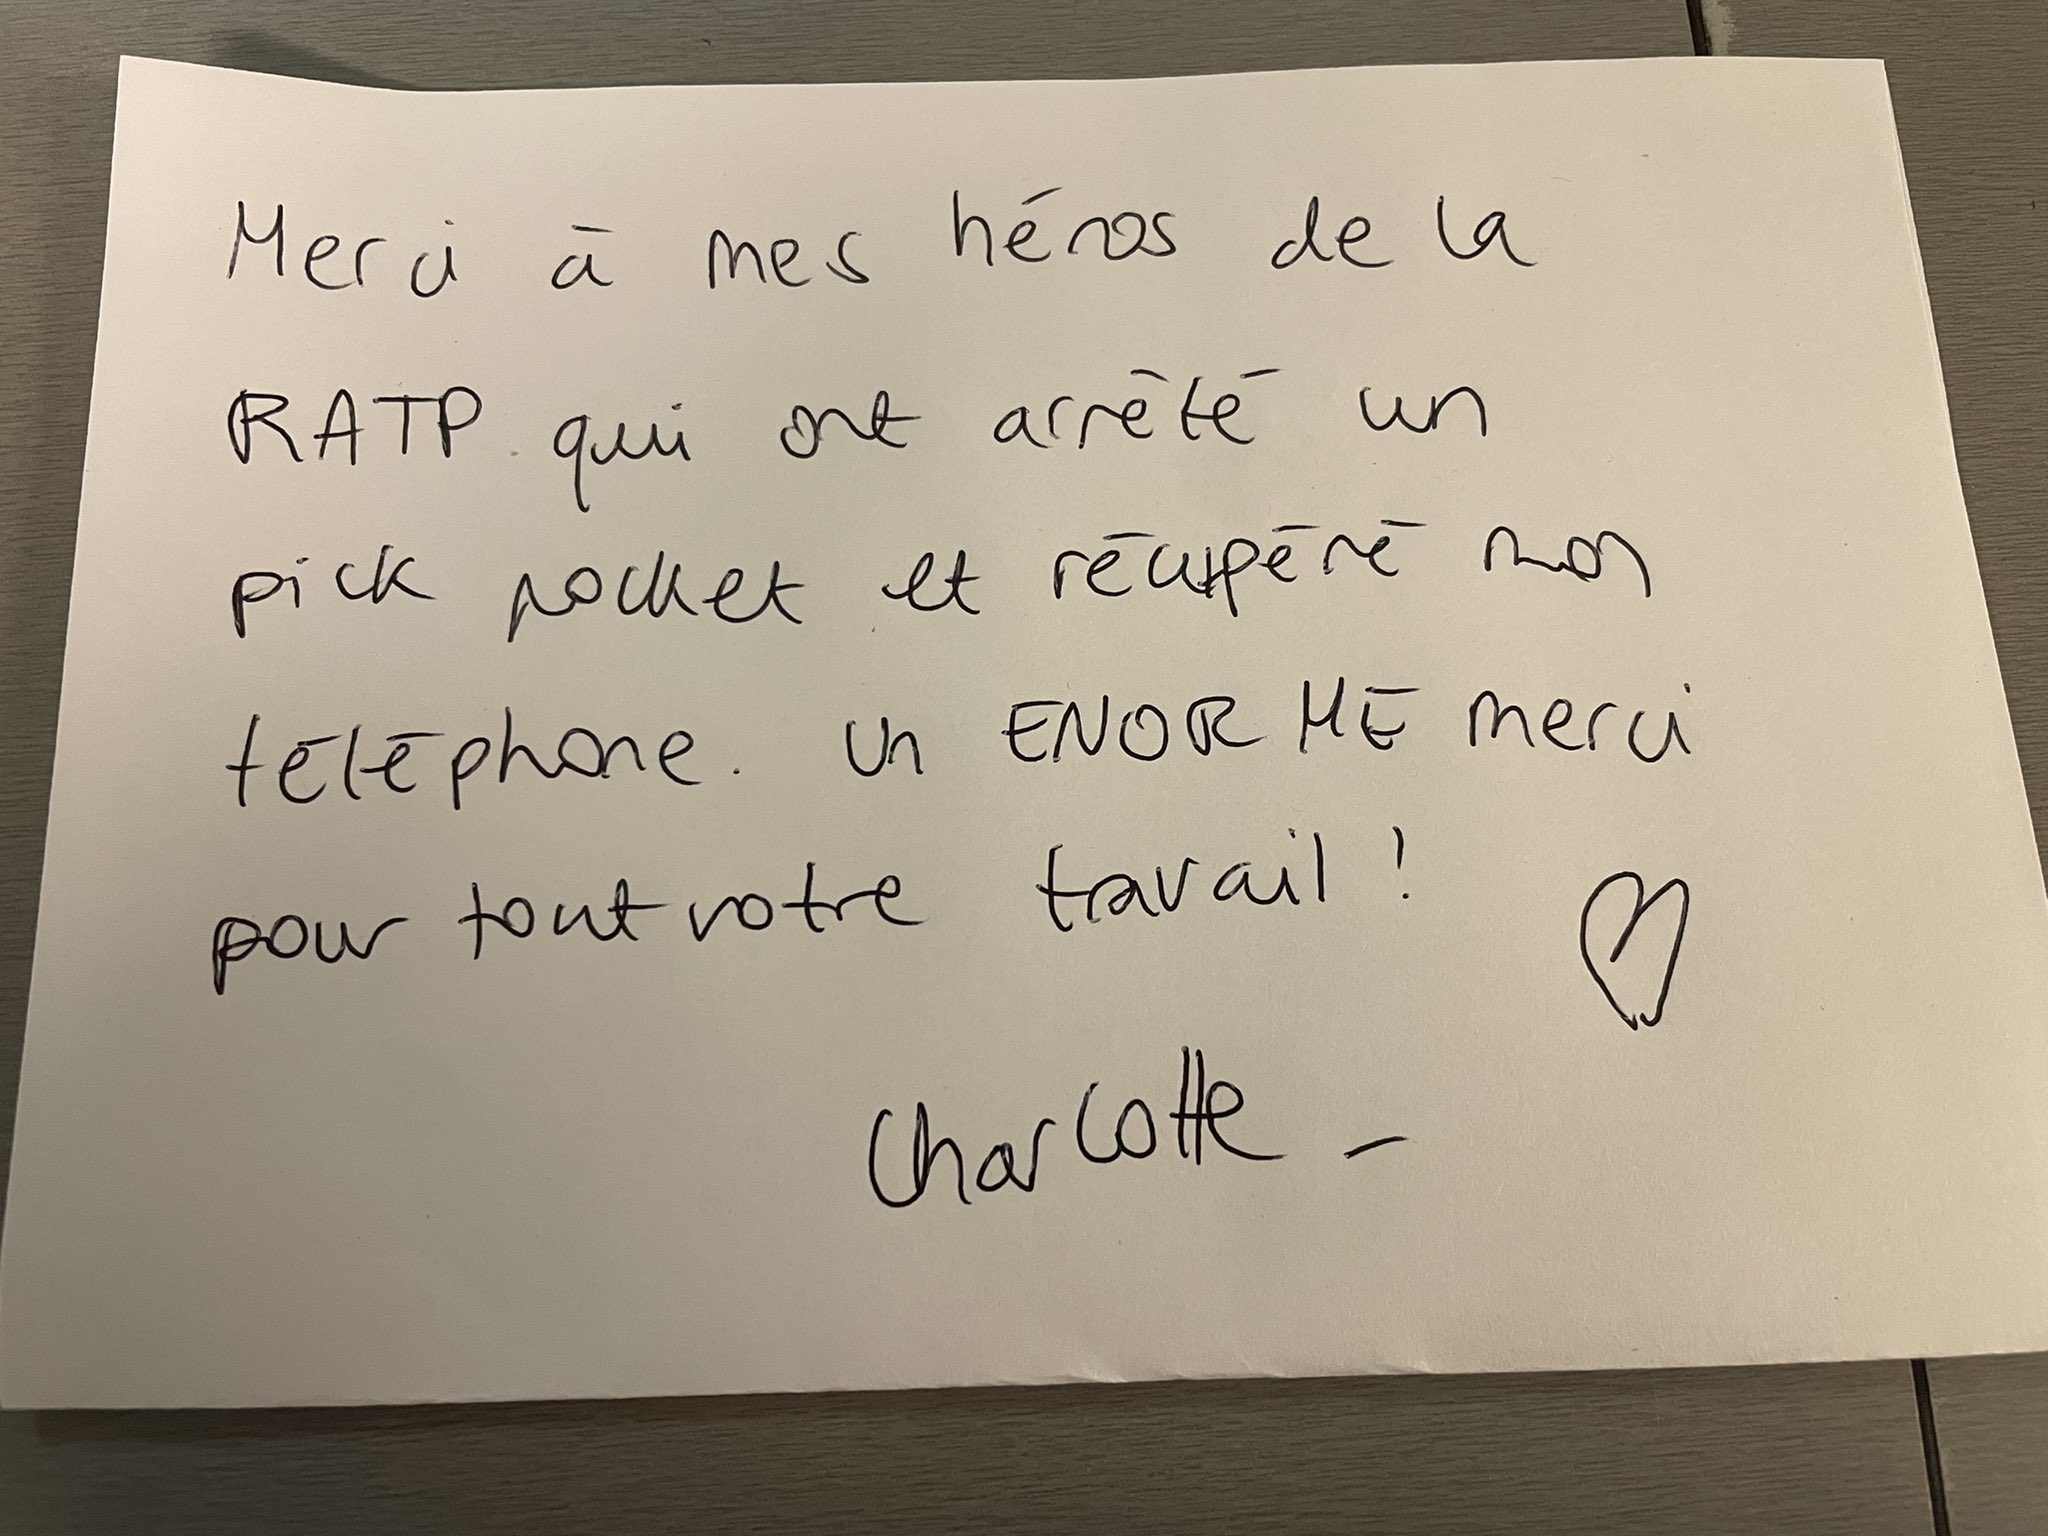 Merci à mes héros de la
RATP qui ont arrêté un
pick pocket et récupéré mon
téléphone. Un ENORME merci
pour tout votre travail !
Charlotte -